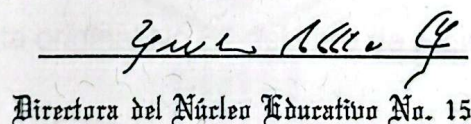 Directora del Núcleo Educativo No. 15